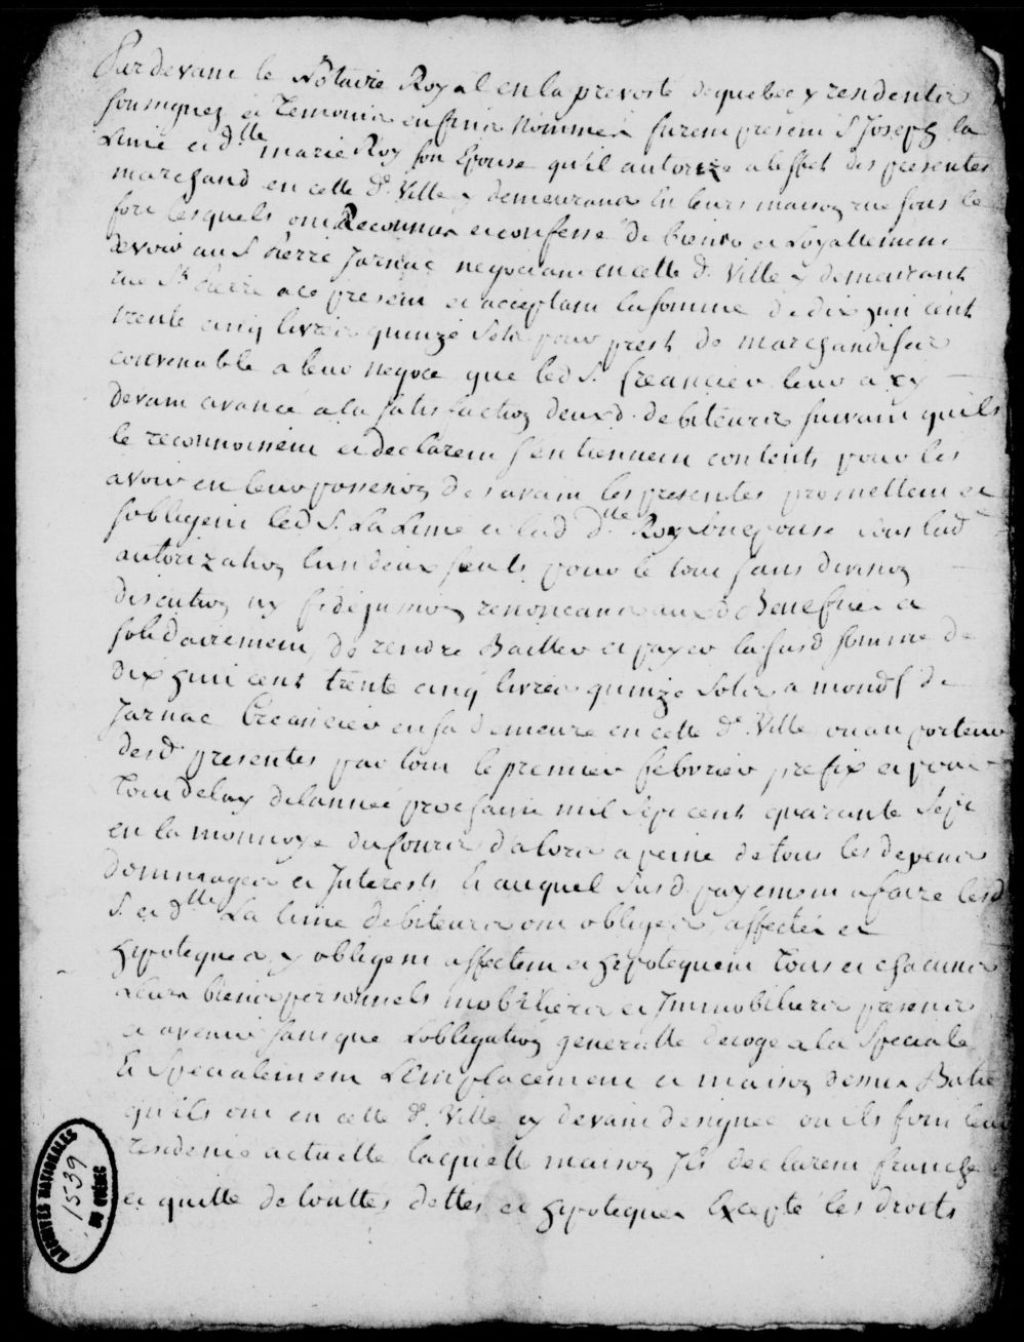 Pardevant le Notaire Royal en la prevosté de quebec y residents
soussignez et Temoins en fin Nommés furent présent S Joseph la
Lime et dlle marie Roy son Epouse qu'il autorize a leffet des presentes
marchand en cette de Ville y demeurants En leurs maison rue sous le
fort lesquels ont Reconnus et confessé de biens et Loyallement
devoir au S Pierre Jarnac negociant en cette de Ville y demeurant
rue St Pierre a ce present et acceptant la somme de dix huit cent
trente cinq livres quinze Sols pour prest de marchandises
convenable a leur negoce que led S. Creancier leur a cy
devant avancé a la satisfaction deux d. debiteurs suivant quils
le reconnoissent et declarent s'en tiennent contents pour les
avoir en leur possession des avant les presentes promettent et
sobligent led S. La Lime et lad dlle Roy son epouse sous lad
autorization lun deux seuls pour le tout sans division
discution ny fidejussion renonceants aux d Benefices et
solidairement de rendre Bailler et payer la susd somme de
dix huit cent trente cinq livres quinze Sols a mond S de
Jarnac Creancier en sa demeure en cette de Ville ou au porteur
desd presentes par tout le premier febvrier prefix et pour
Tout delay de lannée prochaine mil sept cent quarante sept
en la monnoye du Cours d'alors a peine de tous les depens
dommages et Interests Et auquel Susd. payement a faire lesd
S. et dlle La Lime debiteurs ont obligés affectés et
hipotequés y obligent affectent et hipotequent Tous et chacuns
Leurs biens personnels mobiliers et Immobiliers presents
et avenir sans que Lobligation generalle deroge a la Speciale
Et Specialement L'Emplacement et maison dessus Batie
qu'ils ont en cette de Ville cy devant designée ou ils font leur
residence actuelle laquelle maison Ils declarent franche
et quitte de touttes dettes et hipoteques Excepté les droits
ARCHIVES NATIONALES
1539
DU QUÉBEC